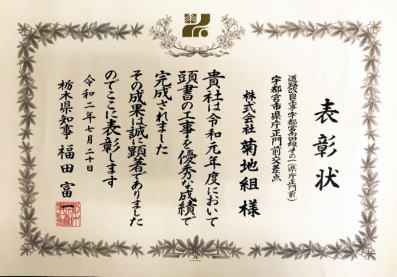 表彰状
道路改良工事宇都宮高田線その一(県庁正門前)
宇都宮市県庁正門前交差点
株式会社 菊地組 様
貴社は令和元年度において
頭書の工事を優秀な成績で
完成されました
その成果は誠に顕著でありました
のでここに表彰します
令和二年七月二十日
栃木県知事 福田富一